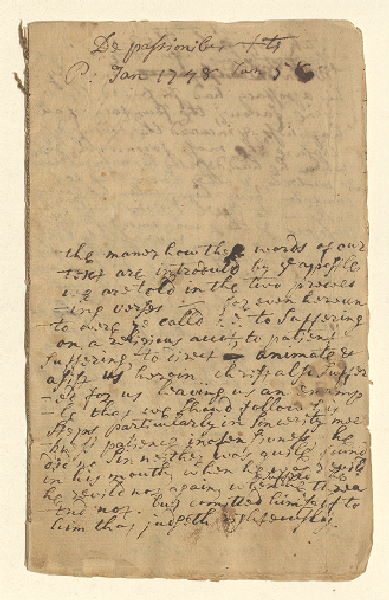 De passionibus Xti
P: Jan 1748
the maner how these words of our
text are introduced by ye apostle
we are told in the two preced
ing verses for even hereun
to were ye called to suffering
on a religious acct, to patient
suffering to direct animate &
assist us herein christ also suffer
ed for us leaving us an examp
le that we should follow his
steps particularly in sincerity mee
kness patience inofensiveness he
did no sin neither was guile found
in his mouth, when he was revild
he revild not again, when he
threatned not but comitted himself to
him that judgeth righteously